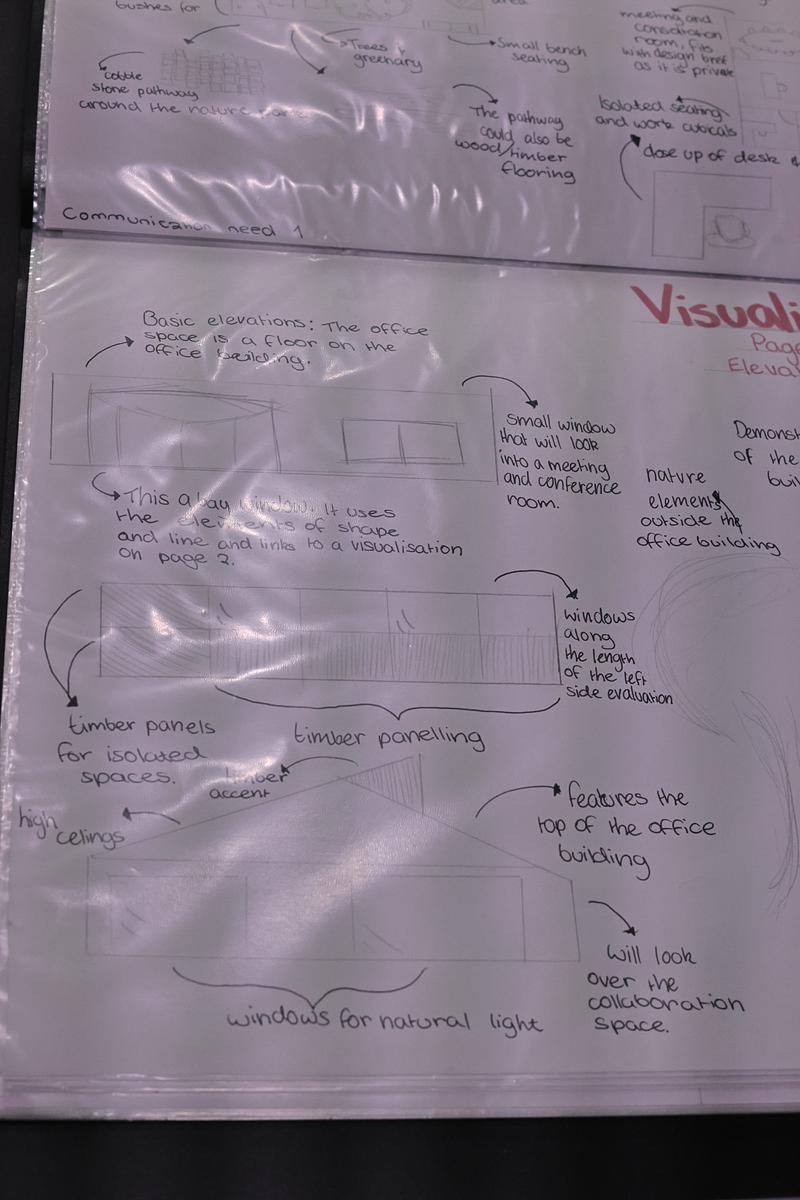 bushes for
area
Trees &
greenary
Small bench
seating
meeting and
consultation
room, fits
with design brief
as it is private
cobble
stone pathway
around the nature
The pathway
could also be
wood/timber
flooring
Isolated seating
and work cubicals
close up of desk &
Communication need 1
Visuali
Page
Eleva
Basic elevations: The office
space is a floor on the
office building.
small window
that will look
into a meeting
and conference
room.
Demonst
of the
buil
nature
elements
outside the
office building
This a bay window. It uses
the elements of shape
and line and links to a visualisation
on page 2.
windows
along
the length
of the left
side evaluation
timber panels
for isolated
spaces.
timber panelling
timber
accent
high
celings
features the
top of the office
building
will look
over the
collaboration
space.
windows for natural light